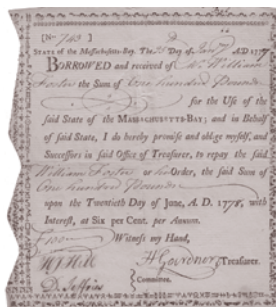 [No 743 ]
STATE of the Massachusetts-Bay. The 25 Day of Jany A.D. 1777
BORROWED and received of Mr. William
Foster the Sum of One hundred Pounds
for the Use of the
said State of the MASSACHUSETTS-BAY; and in Behalf
of said State, I do hereby promise and oblige myself, and
Successors in said Office of Treasurer, to repay the said
William Foster or his Order, the said Sum of
One hundred Pounds
upon the Twentieth Day of June, A. D. 1778, with
Interest, at Six per Cent. per Annum.
Witness my Hand,
H Gardner Treasurer.
Committee.
D. Jeffries